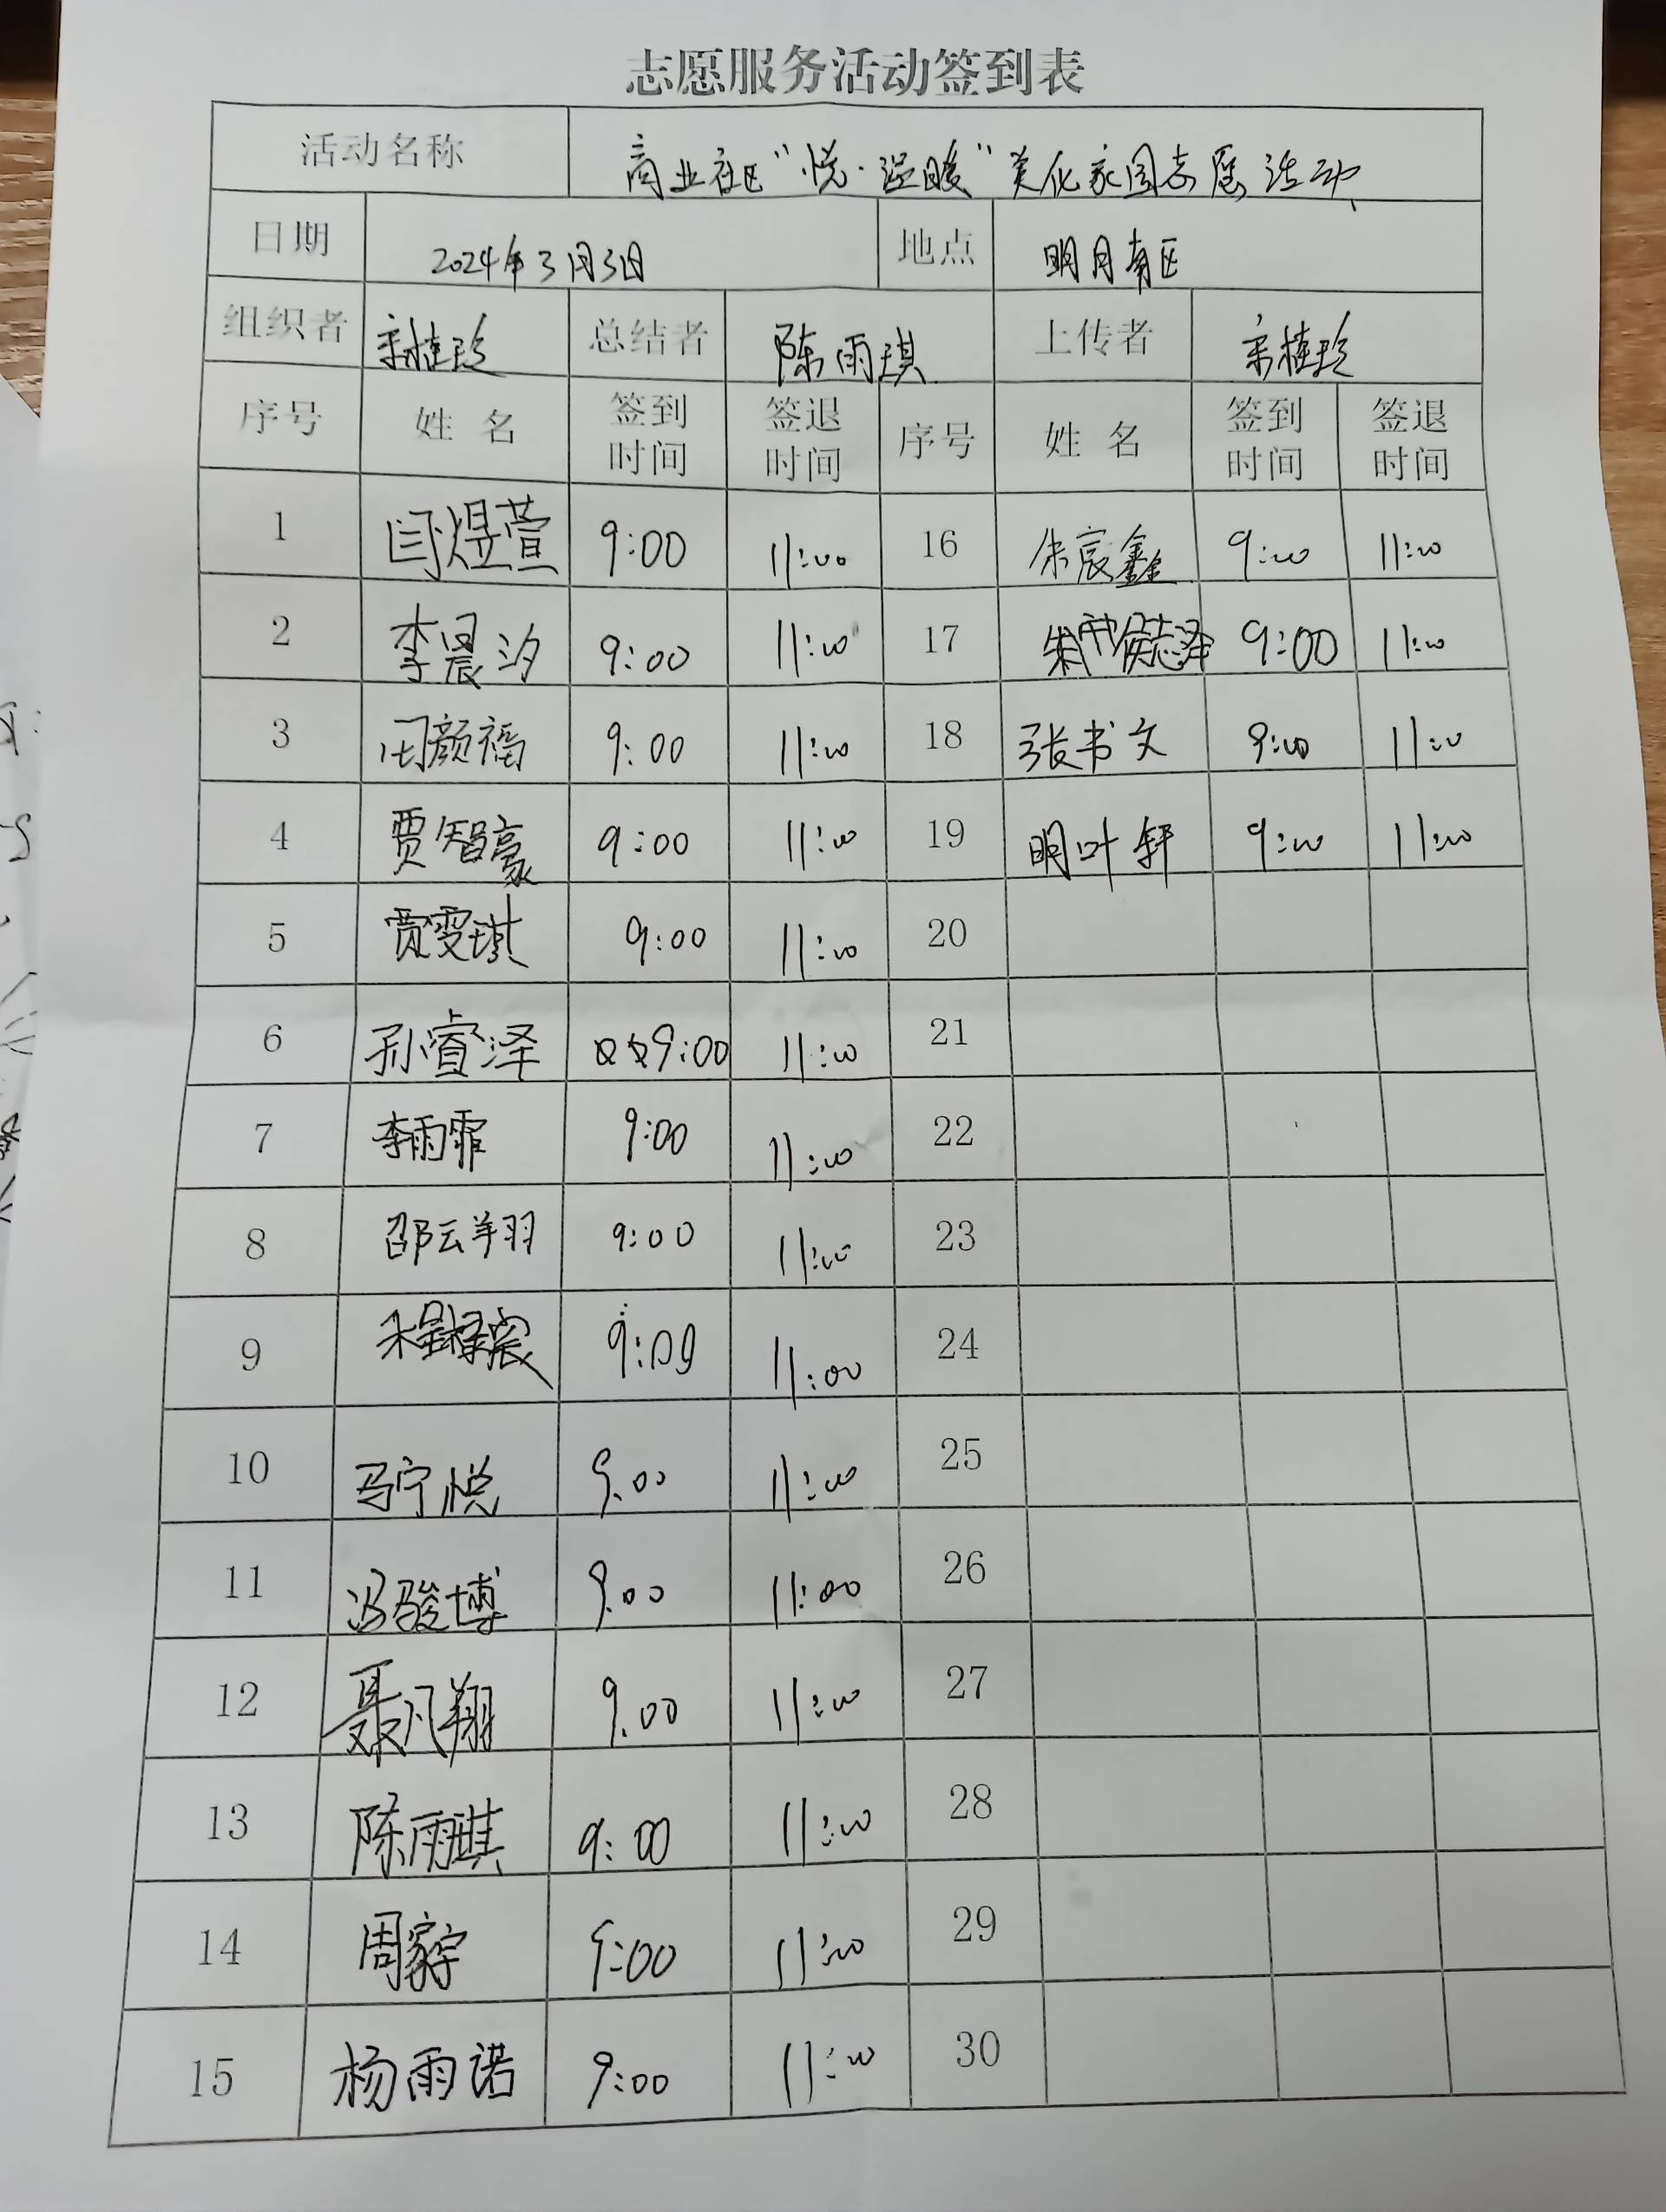 志愿服务活动签到表
活动名称 商业社区“悦·温暖”美化家园志愿活动
日期 2024年3月3日 地点 明月南区
组织者 宋桂玲 总结者 陈雨琪 上传者 宋桂玲
序号 姓名 签到时间 签退时间 序号 姓名 签到时间 签退时间
1 闫煜萱 9:00 11:00 16 朱宸鑫 9:00 11:00
2 李晨汐 9:00 11:00 17 侯志泽 9:00 11:00
3 闫颜福 9:00 11:00 18 张书文 9:00 11:00
4 贾智豪 9:00 11:00 19 明叶轩 9:00 11:00
5 贾雯琪 9:00 11:00 20
6 孙睿泽 9:00 11:00 21
7 李雨霏 9:00 11:00 22
8 邵云翔 9:00 11:00 23
9 9:00 11:00 24
10 马宁悦 9:00 11:00 25
11 冯骏博 9:00 11:00 26
12 聂凡翔 9:00 11:00 27
13 陈雨琪 9:00 11:00 28
14 周家宇 9:00 11:00 29
15 杨雨诺 9:00 11:00 30